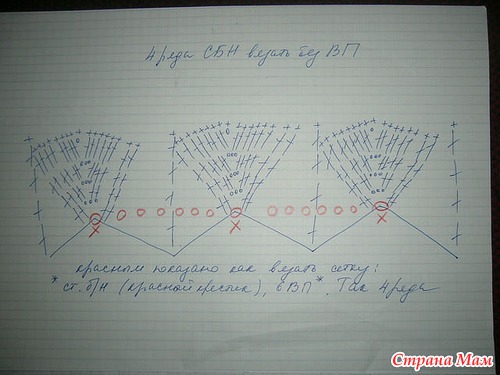 4 ряда СБН вязать без ВП
красным показано как вязать сетку:
* ст. б/н (красный крестик), 6 ВП *. Так 4 ряда
Страна Мам